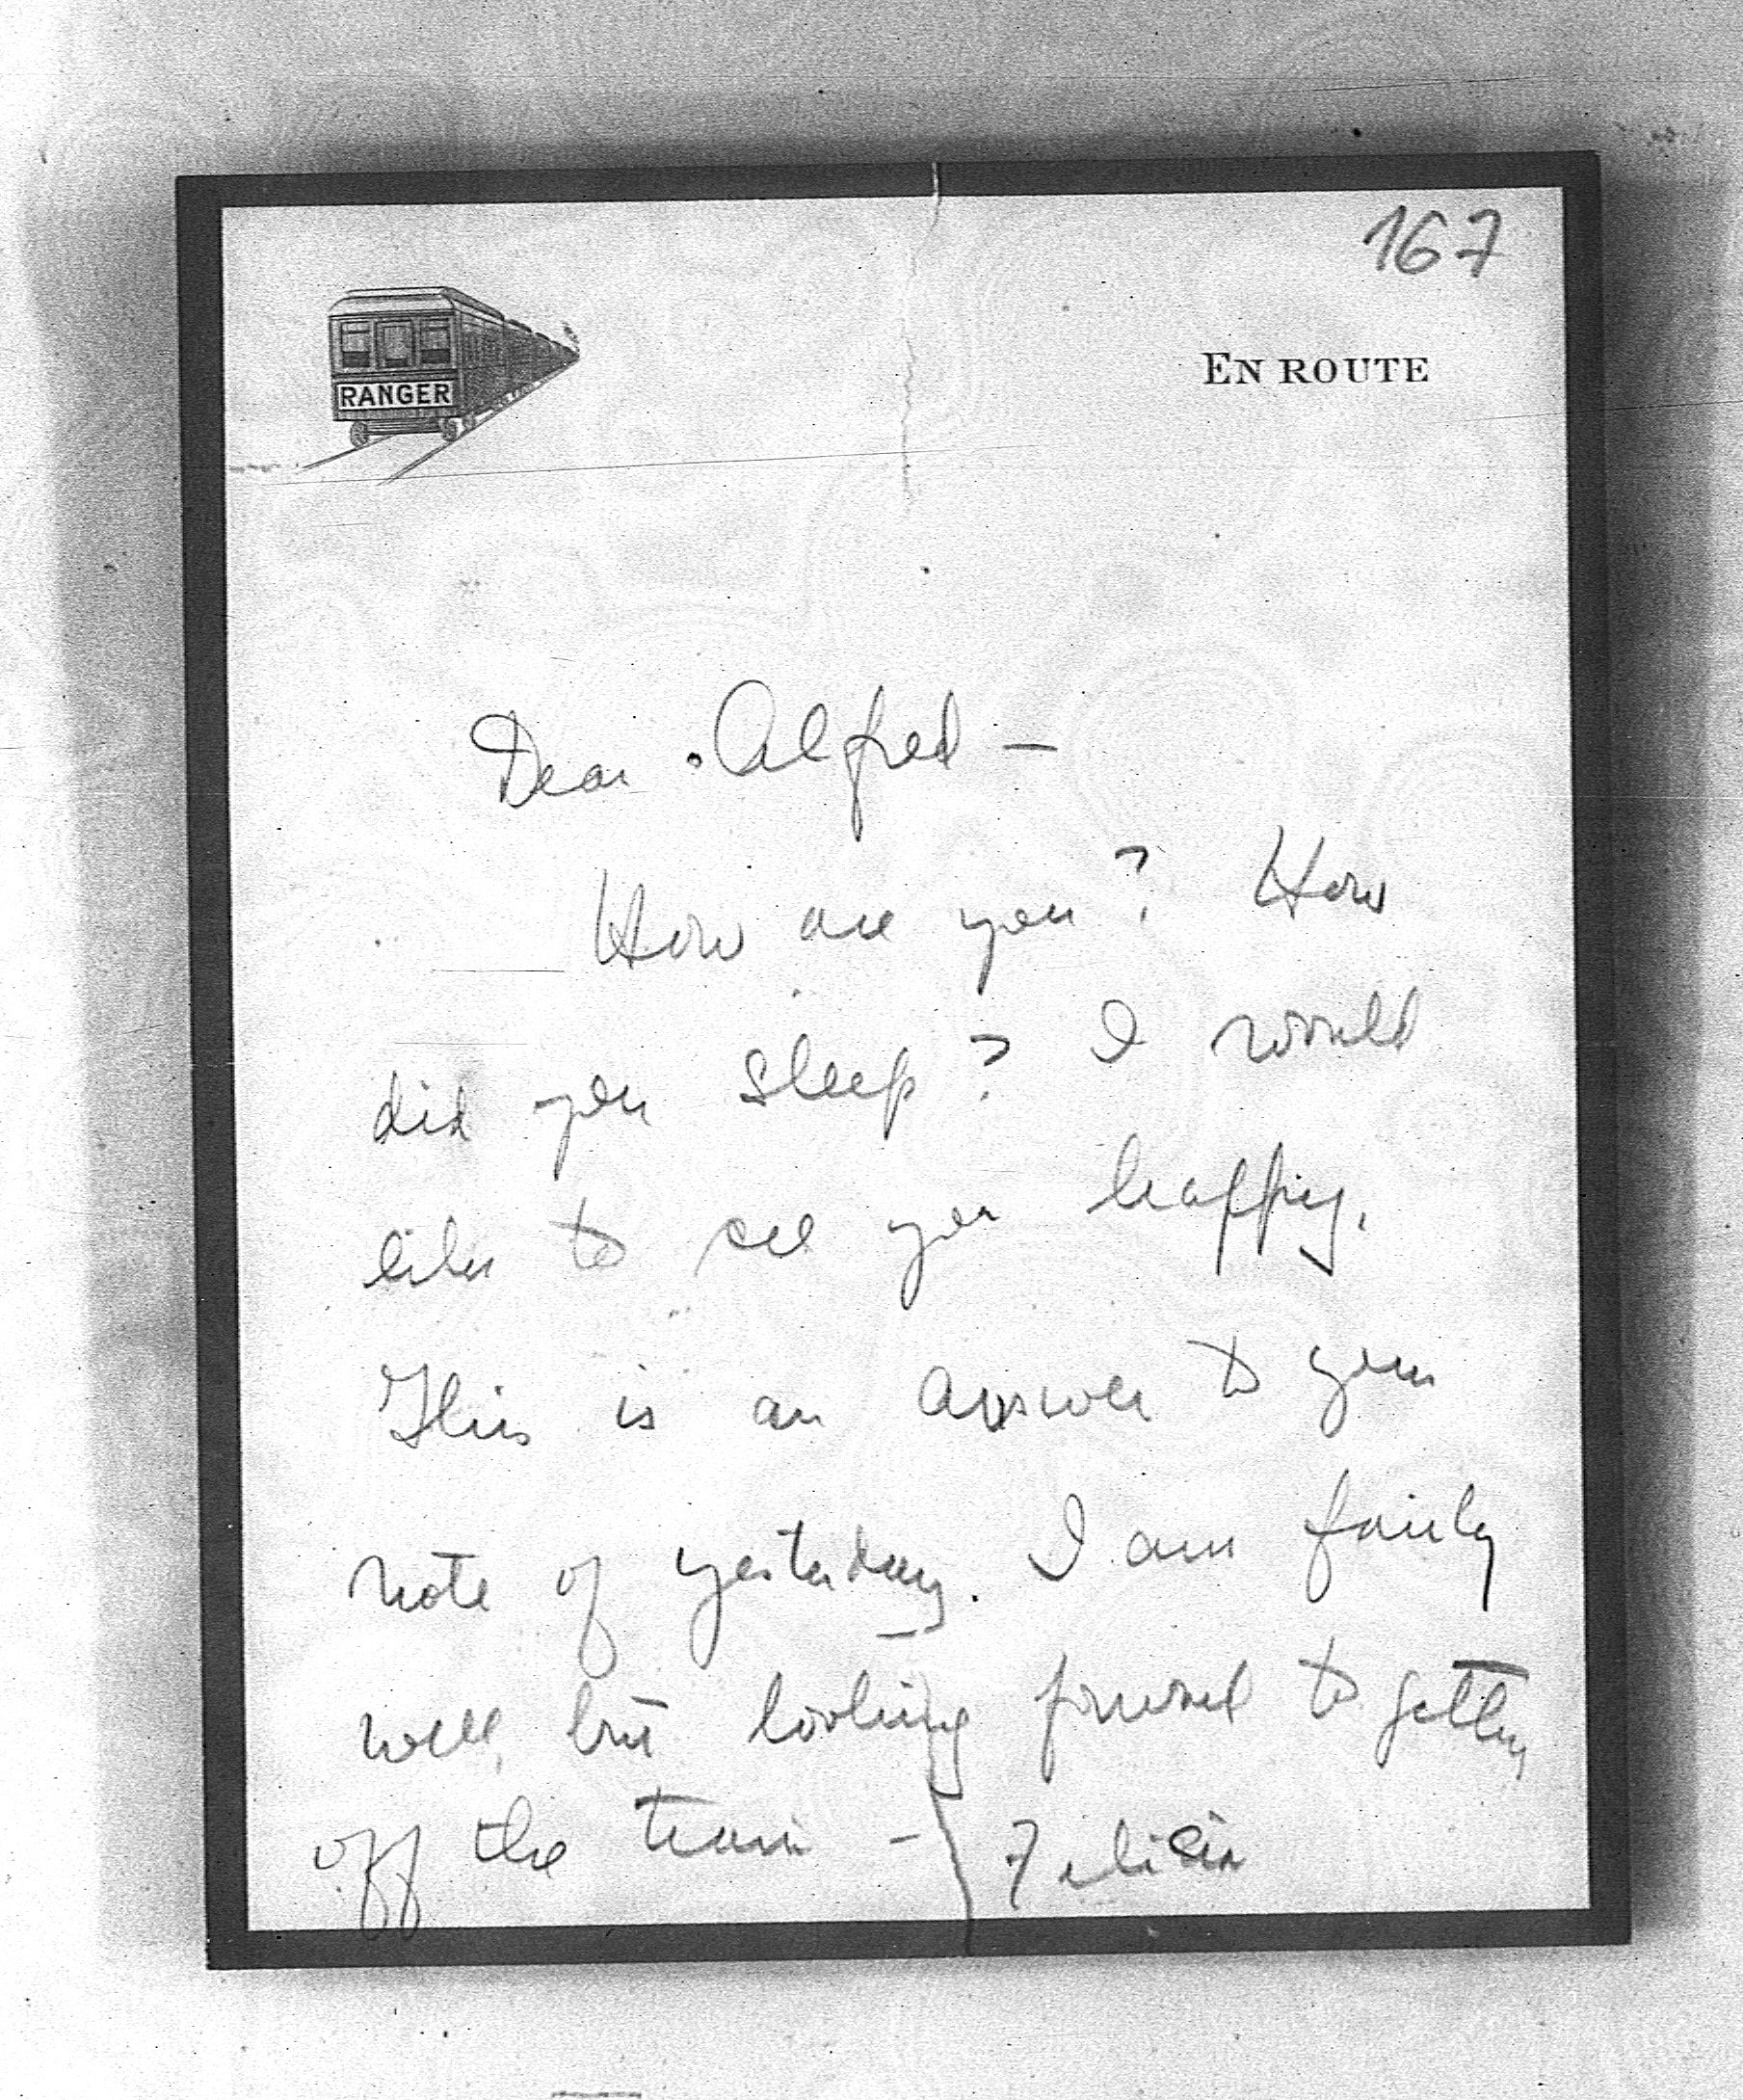 167
RANGER
EN ROUTE
Dear Alfred —
How are you? How
did you sleep? I would
like to see you happy.
This is an answer to your
note of yesterday. I am fairly
well, but looking forward to getting
off the train — Felicia